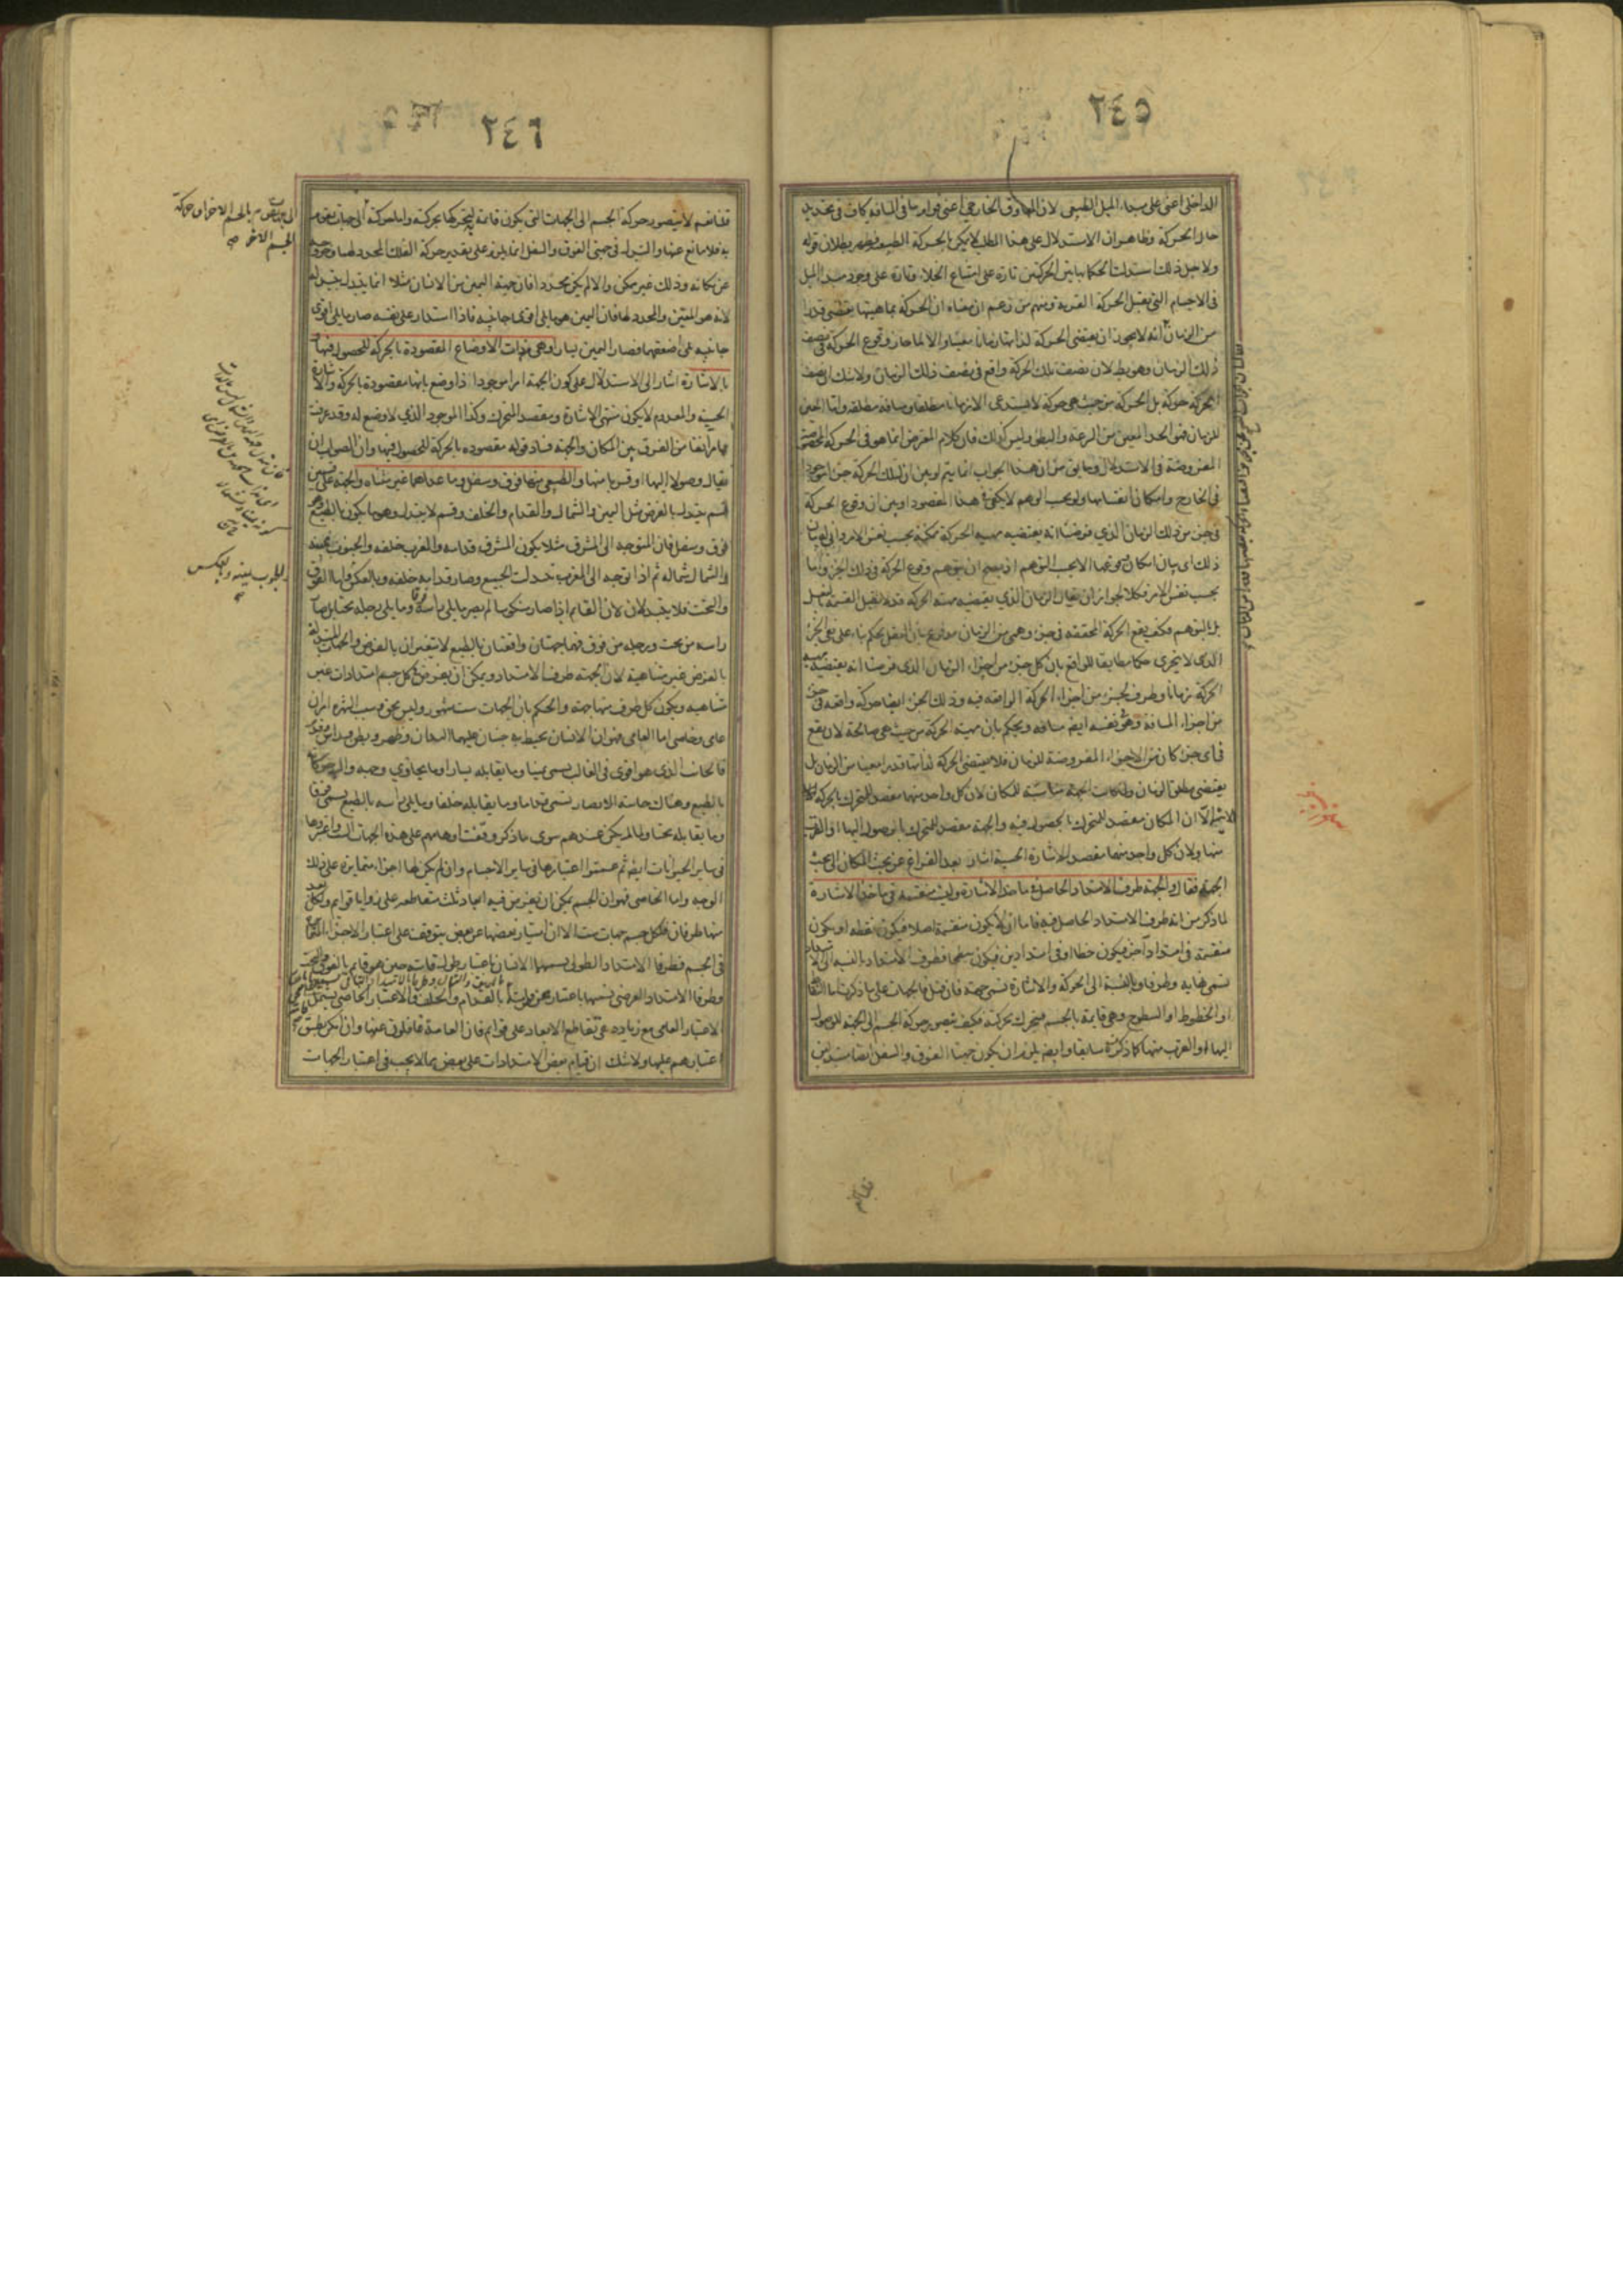 ٢٤٥
الداخلى اعنى على مبداء الميل الطبيعى لان المعاوق الخارجى اعنى قوام ما فى المسافة كاف فى تحديد
حال الحركة وظاهر ان الاستدلال على هذا المطلب لا يمكن بالحركة الطبيعية فظهر بطلان قوله
ولاجل ذلك استدلت الحكما بهاتين الحركتين تارة على امتناع الخلاء وتارة على وجود مبدء الميل
فى الاجسام التى يقبل الحركة القسرية ومنهم من زعم ان معناه ان الحركة بماهيتها يقتضى قدرا
من الزمان انه لا يجوز ان يقتضى الحركة لذاتها زمانا معينا والا لما جاز وقوع الحركة فى نصف
ذلك الزمان وهو بط لان نصف تلك الحركة واقع فى نصف ذلك الزمان ولا شك ان نصف
الحركة حركة بل الحركة من حيث هى حركة لا يستدعى الا زمانا مطلقا ومسافة مطلقه واما المعين
للزمان فهو الحد المعين من السرعة والبطؤ وليس كذلك فان كلام المعترض انما هو فى الحركة المخصوصة
المفروضة فى الاستدلال وما يق من ان هذا الجواب انما يتم لو بين ان لتلك الحركة جزء موجود
فى الخارج وامكان انقسامها ولو بحسب الوهم لا يكفى فى هذا المقصود او بين ان وقوع الحركة
فى جزء من ذلك الزمان الذي فرضنا انه يقتضيه مهيه الحركة ممكنة بحسب نفس الامر وانى له بيان
ذلك اى بيان امكان وقوعها لا بحسب التوهم اذ يصح ان يتوهم وقوع الحركة فى ذلك الجزء واما
بحسب نفس الامر فكلا لجواز ان يقال الزمان الذي يقتضيه مهية الحركة قد لا يقبل القسمة بالفعل
بل بالتوهم فكيف يقع الحركة المحققة فى جزء وهمى من الزمان مدفوع بان العقل يحكم بناء على نفى الجزء
الذى لا يتجزى حكما مطابقا للواقع بان كل جزء من اجزاء الزمان الذى فرضنا انه يقتضيه مهية
الحركة زمانا وظرف لجزء من اجزاء الحركة الواقعه فيه وذلك الجزء ايضا حركة واقعه فى جزء
من اجزاء المسافة وهو فى نفسه ايضا مسافة ويحكم بان مهية الحركة من حيث هى صالحة لان يقع
فى اى جزء كان من الاجزاء المفروضة للزمان فلا يقتضى الحركة لذاتها قدرا معينا من الزمان بل
يقتضى مطلق الزمان ولما كانت الجهة مناسبة للمكان لان كل واحد منها مقصد للمتحرك بالحركة
الاينية الا ان المكان مقصد للمتحرك بالحصول فيه والجهة مقصد للمتحرك بالوصول اليها او القرب
منها ولان كل واحد منها مقصد للاشارة الحسية اشار بعد الفراغ عن بحث المكان الى بحث
الجهة فقال والجهة طرف الامتداد الحاصل فى ماخذ الاشارة وليست منقسمة فى ماخذ الاشارة
لما ذكر من انه طرف الامتداد الحاصل فيه فاما ان لا يكون منقسمة اصلا فيكون نقطه او يكون
منقسمة فى امتداد آخر فيكون خطا او فى امتدادين فيكون سطحا فطرف الامتداد بالنسبه الى الامتداد
تسمى نهاية وطرفا وبالنسبة الى الحركة والاشارة تسمى جهة فان قيل فالجهات على ما ذكرت اما النقاط
او الخطوط او السطوح وهى قايمة بالجسم فيتحرك بحركته فكيف يتصور حركة الجسم الى الجهة للوصول
اليها او القرب منها كما ذكرته سابقا وايضا يلزم ان يكون جهتا الفوق والسفل ايضا متبدلتين
٢٤٦
قلنا نعم لا يتصور حركة الجسم الى الجهات التى يكون قائمة به لتحركها بحركته واما حركته الى جهات يقوم
به فلا مانع عنها والتبدل فى جهتى الفوق والسفل انما يلزم على تقدير حركة الفلك المحدد لهما وخروجه
عن مكانه وذلك غير ممكن والا لم يكن محددا فان جهة اليمين من الانسان مثلا انما يتبدل بتبدله
لانه هو المعين والمحدد لها فان اليمين هو ما يلى اقوى جانبيه فاذا استدار على نفسه صار ما يلى اقوى
جانبيه يلى اضعفهما فصار اليمين يسارا وهى من ذوات الاوضاع المقصودة بالحركة للحصول فيها و
بالاشارة اشار الى الاستدلال على كون الجهة امرا موجودا ذا وضع بانها مقصودة بالحركة والاشارة
الحسية والمعدوم لا يكون منتهى الاشارة ومقصد المتحرك وكذا الموجود الذي لا وضع له وقد عرفت
مما مر آنفا من الفرق بين المكان والجهة فساد قوله مقصوده بالحركة للحصول فيها وان الصواب ان
يقال وصولا اليها او قربا منها والطبيعى منها فوق وسفل وما عداهما غير متناه والجهة على قسمين
قسم يتبدل بالفرض مثل اليمين والشمال والقدام والخلف وقسم لا يتبدل وهو ما يكون بالطبع وهو
فوق وسفل فان المتوجه الى المشرق مثلا يكون المشرق قدامه والمغرب خلفه والجنوب يمينه
والشمال شماله ثم اذا توجه الى المغرب تبدلت الجميع وصار قدامه خلفه وبالعكس واما الفوق
والتحت فلا يتبدلان لان القائم اذا صار منكوسا لم يصر ما يلى راسه فوقا وما يلى رجله تحتا بل صار
راسه من تحت ورجله من فوق فهما جهتان واقعتان بالطبع لا يتغيران بالفرض والجهات المتبدلة
بالفرض غير متناهية لان الجهة طرف الامتداد ويمكن ان يفرض فى كل جسم امتدادات غير
متناهيه ويكون كل طرف منها جهة والحكم بان الجهات ست مشهور وليس بحق وسبب الشهرة امران
عامى وخاصى اما العامى فهو ان الانسان يحيط به جنبان عليهما اليدان وظهر وبطن وراس وقدم
فالجانب الذى هو اقوى فى الغالب يسمى يمينا وما يقابله يسارا وما يحاذي وجهه واليه حركته
بالطبع وهناك حاسة الابصار تسمى قداما وما يقابله خلفا وما يلى راسه بالطبع يسمى فوقا
وما يقابله تحتا ولما لم يكن عندهم سوى ما ذكر وقفت اوهامهم على هذه الجهات الست واعتبروها
فى ساير الحيوانات ايضا ثم عمموا اعتبارها فى ساير الاجسام وان لم يكن لها اجزاء متمايزة على ذلك
الوجه واما الخاصى فهو ان الجسم يمكن ان يفرض فيه ابعاد ثلث متقاطعه على زوايا قوايم ولكل بعد
منها طرفان فلكل جسم جهات ست الا ان امتياز بعضها عن بعض يتوقف على اعتبار الاجزاء المتمايزة
فى الجسم فطرفا الامتداد الطولى يسميهما الانسان باعتبار طول قامته حين هو قايم بالفوق والتحت
وطرفا الامتداد العرضى يسميها باعتبار عرض قامته باليمين والشمال وطرفا الامتداد الباقى يسميهما باعتبار ثخن قامته بالقدام والخلف والاعتبار الخاصى يشمل
الاعتبار العامى مع زيادة هى تقاطع الابعاد على قوايم فان العامة غافلون عنها وان امكن تطبيق
اعتبارهم عليها ولا شك ان قيام بعض الامتدادات على بعض مما لا يجب فى اعتبار الجهات